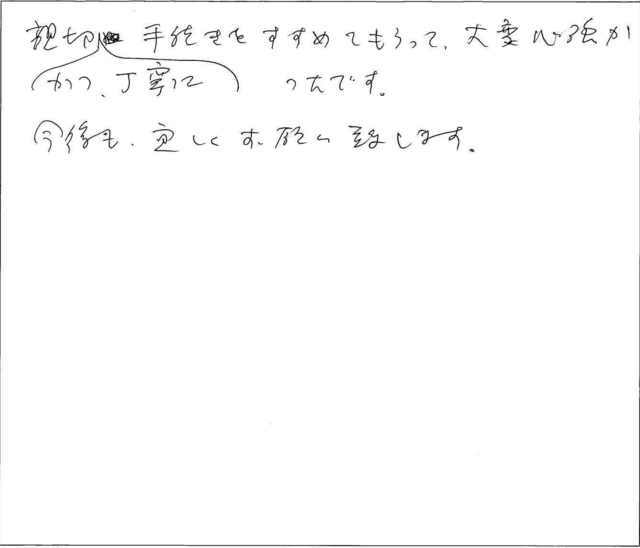 親切 手続きをすすめてもらって、大変心強か
かつ、丁寧に ったです。
今後も、宜しくお願い致します。